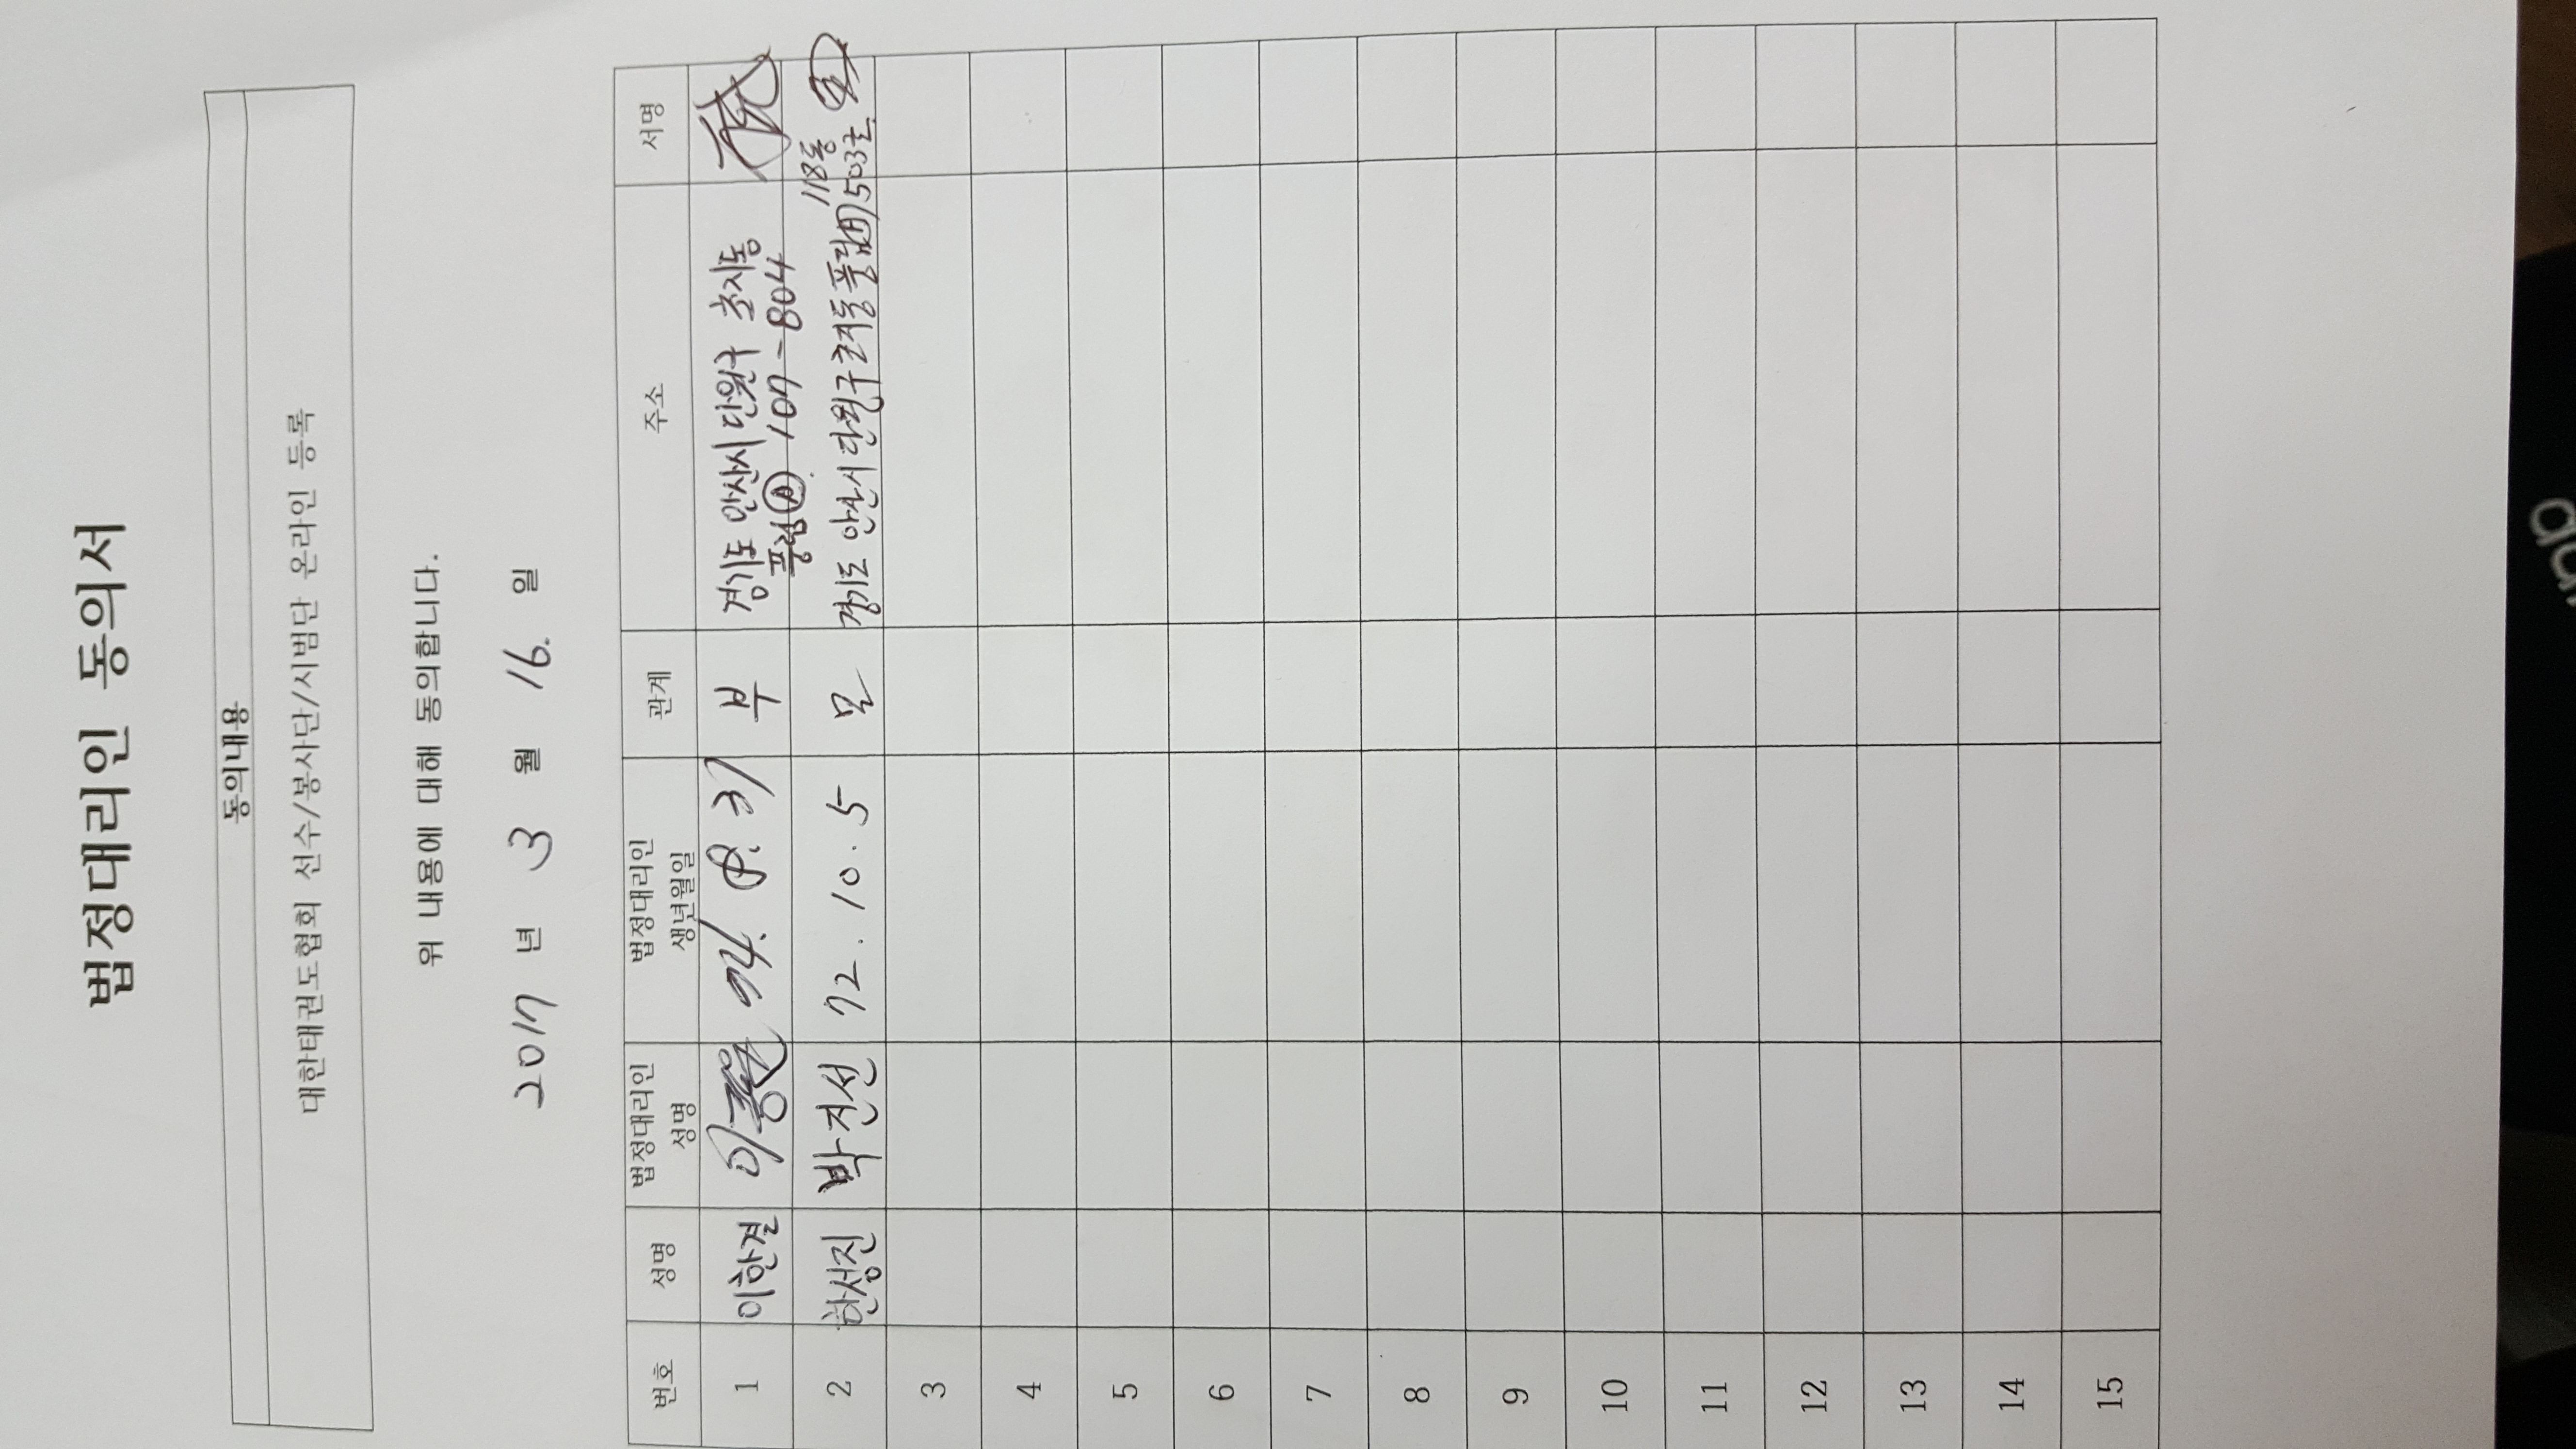 법정대리인 동의서
동의내용
대한태권도협회 선수/봉사단/시범단 온라인 등록
위 내용에 대해 동의합니다.
2017 년 3 월 16. 일
번호 성명 법정대리인 성명 법정대리인 생년월일 관계 주소 서명
1 이한결 이 부 경기도 안산시 단원구 초지동
풍림 Ⓐ 107-804
118동
2 한성진 박진선 72.10.5 모 경기도 안산시 단원구 초지동 풍림 1503호
3
4
5
6
7
8
9
10
11
12
13
14
15